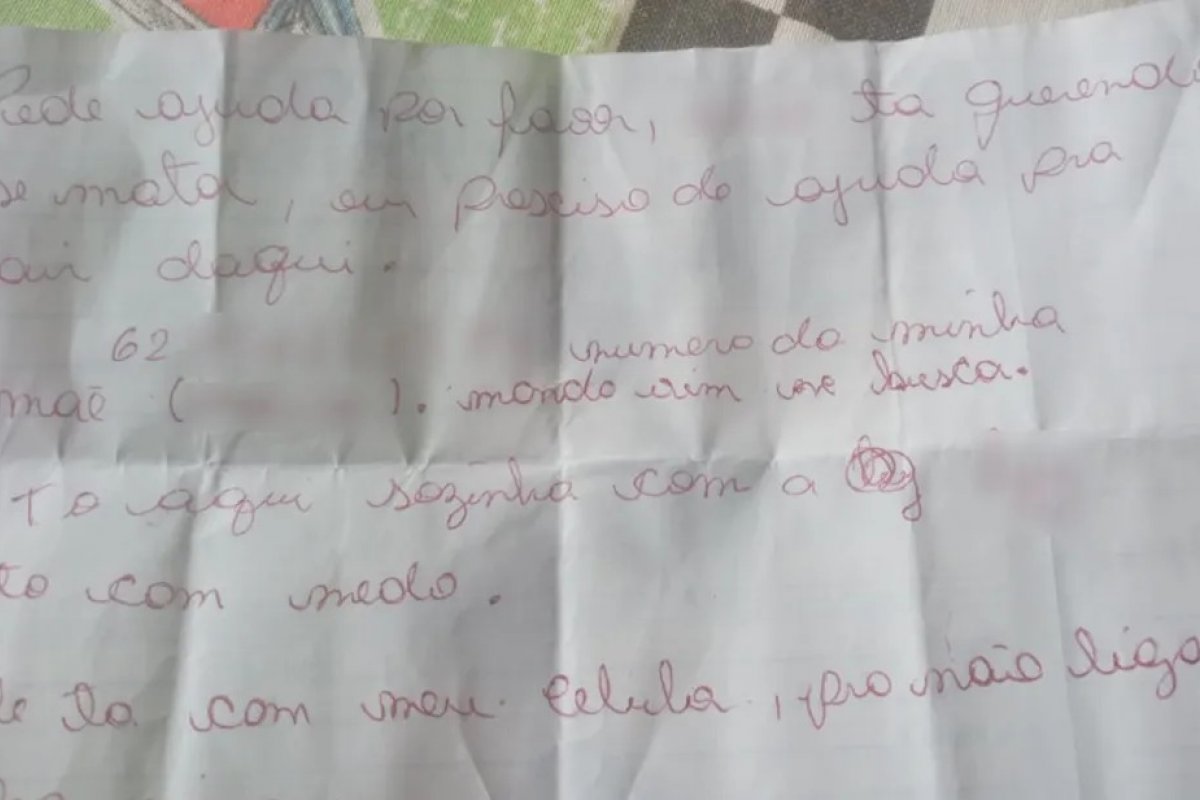 Pede ajuda por favor, ta querendo
se mata, eu preciso de ajuda pra
air daqui.
62 numero da minha
mãe ( ). manda vim me busca.
To aqui sozinha com a
to com medo.
le ta com meu celula, pra não liga